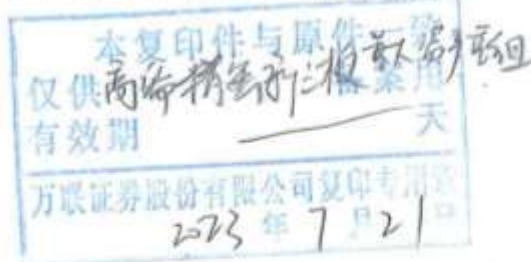 本复印件与原件一致
仅供高 备案用
有效期 天
万联证券股份有限公司复印专用章
2023年7月21日